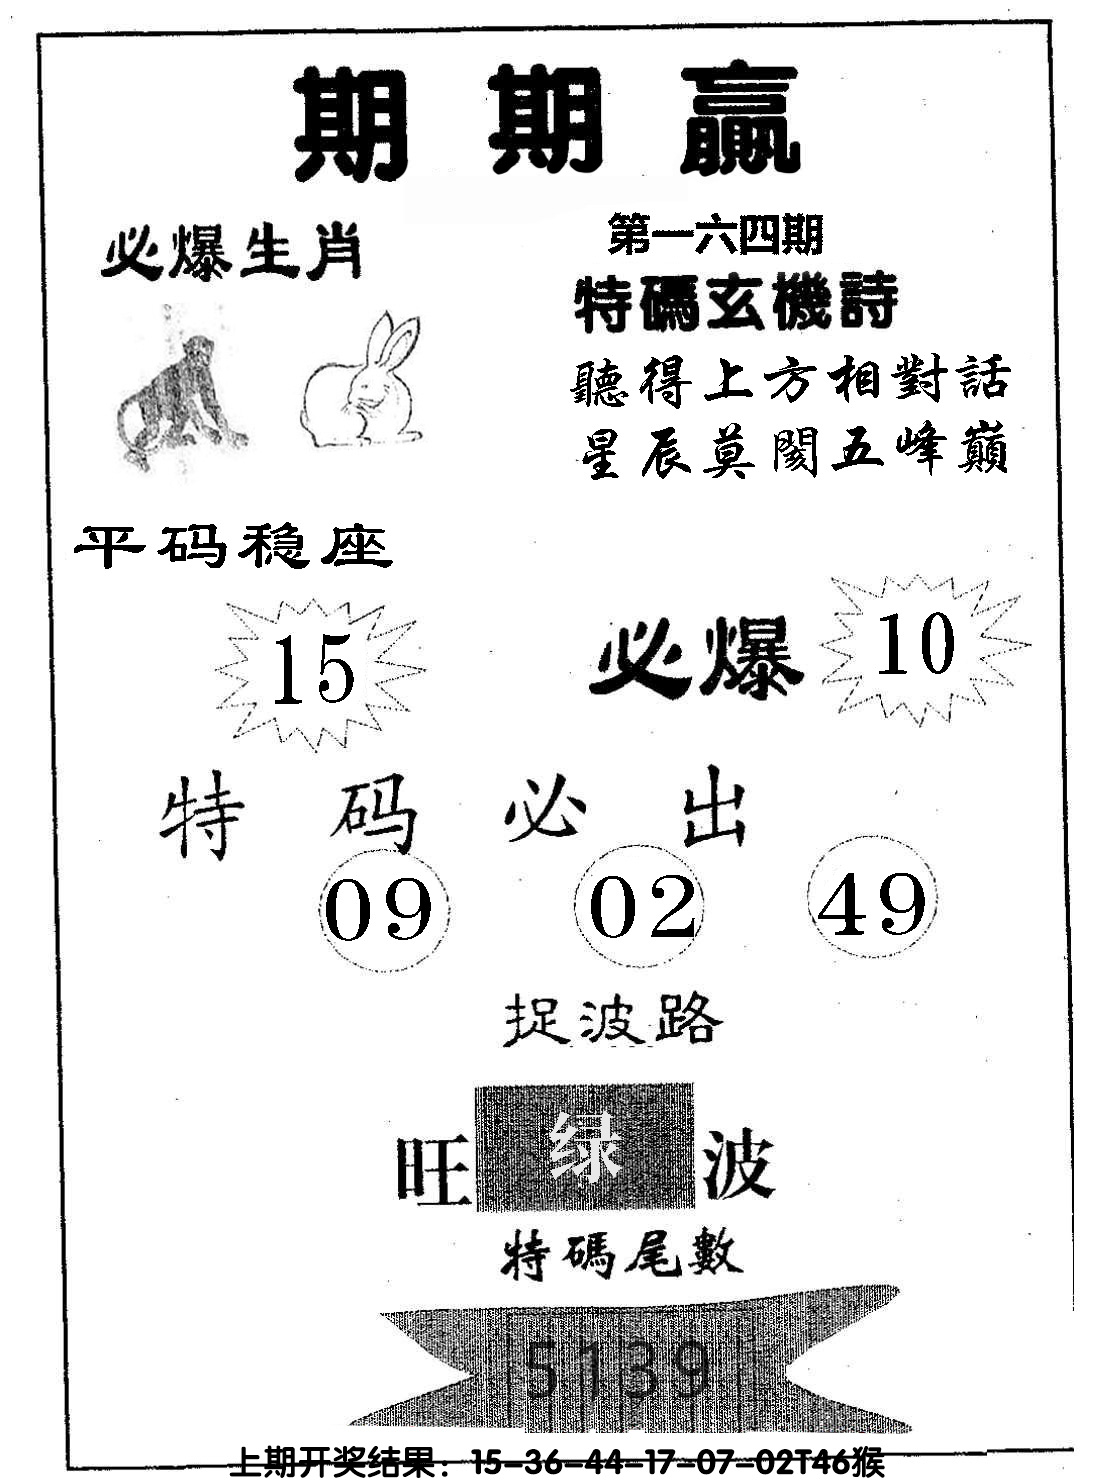 期期贏
必爆生肖
第一六四期
特碼玄機詩
聽得上方相對話
星辰莫閡五峰巔
平码稳座
15
必爆
10
特码必出
09 02 49
捉波路
旺 绿 波
特碼尾數
5139
上期开奖结果：15-36-44-17-07-02T46猴